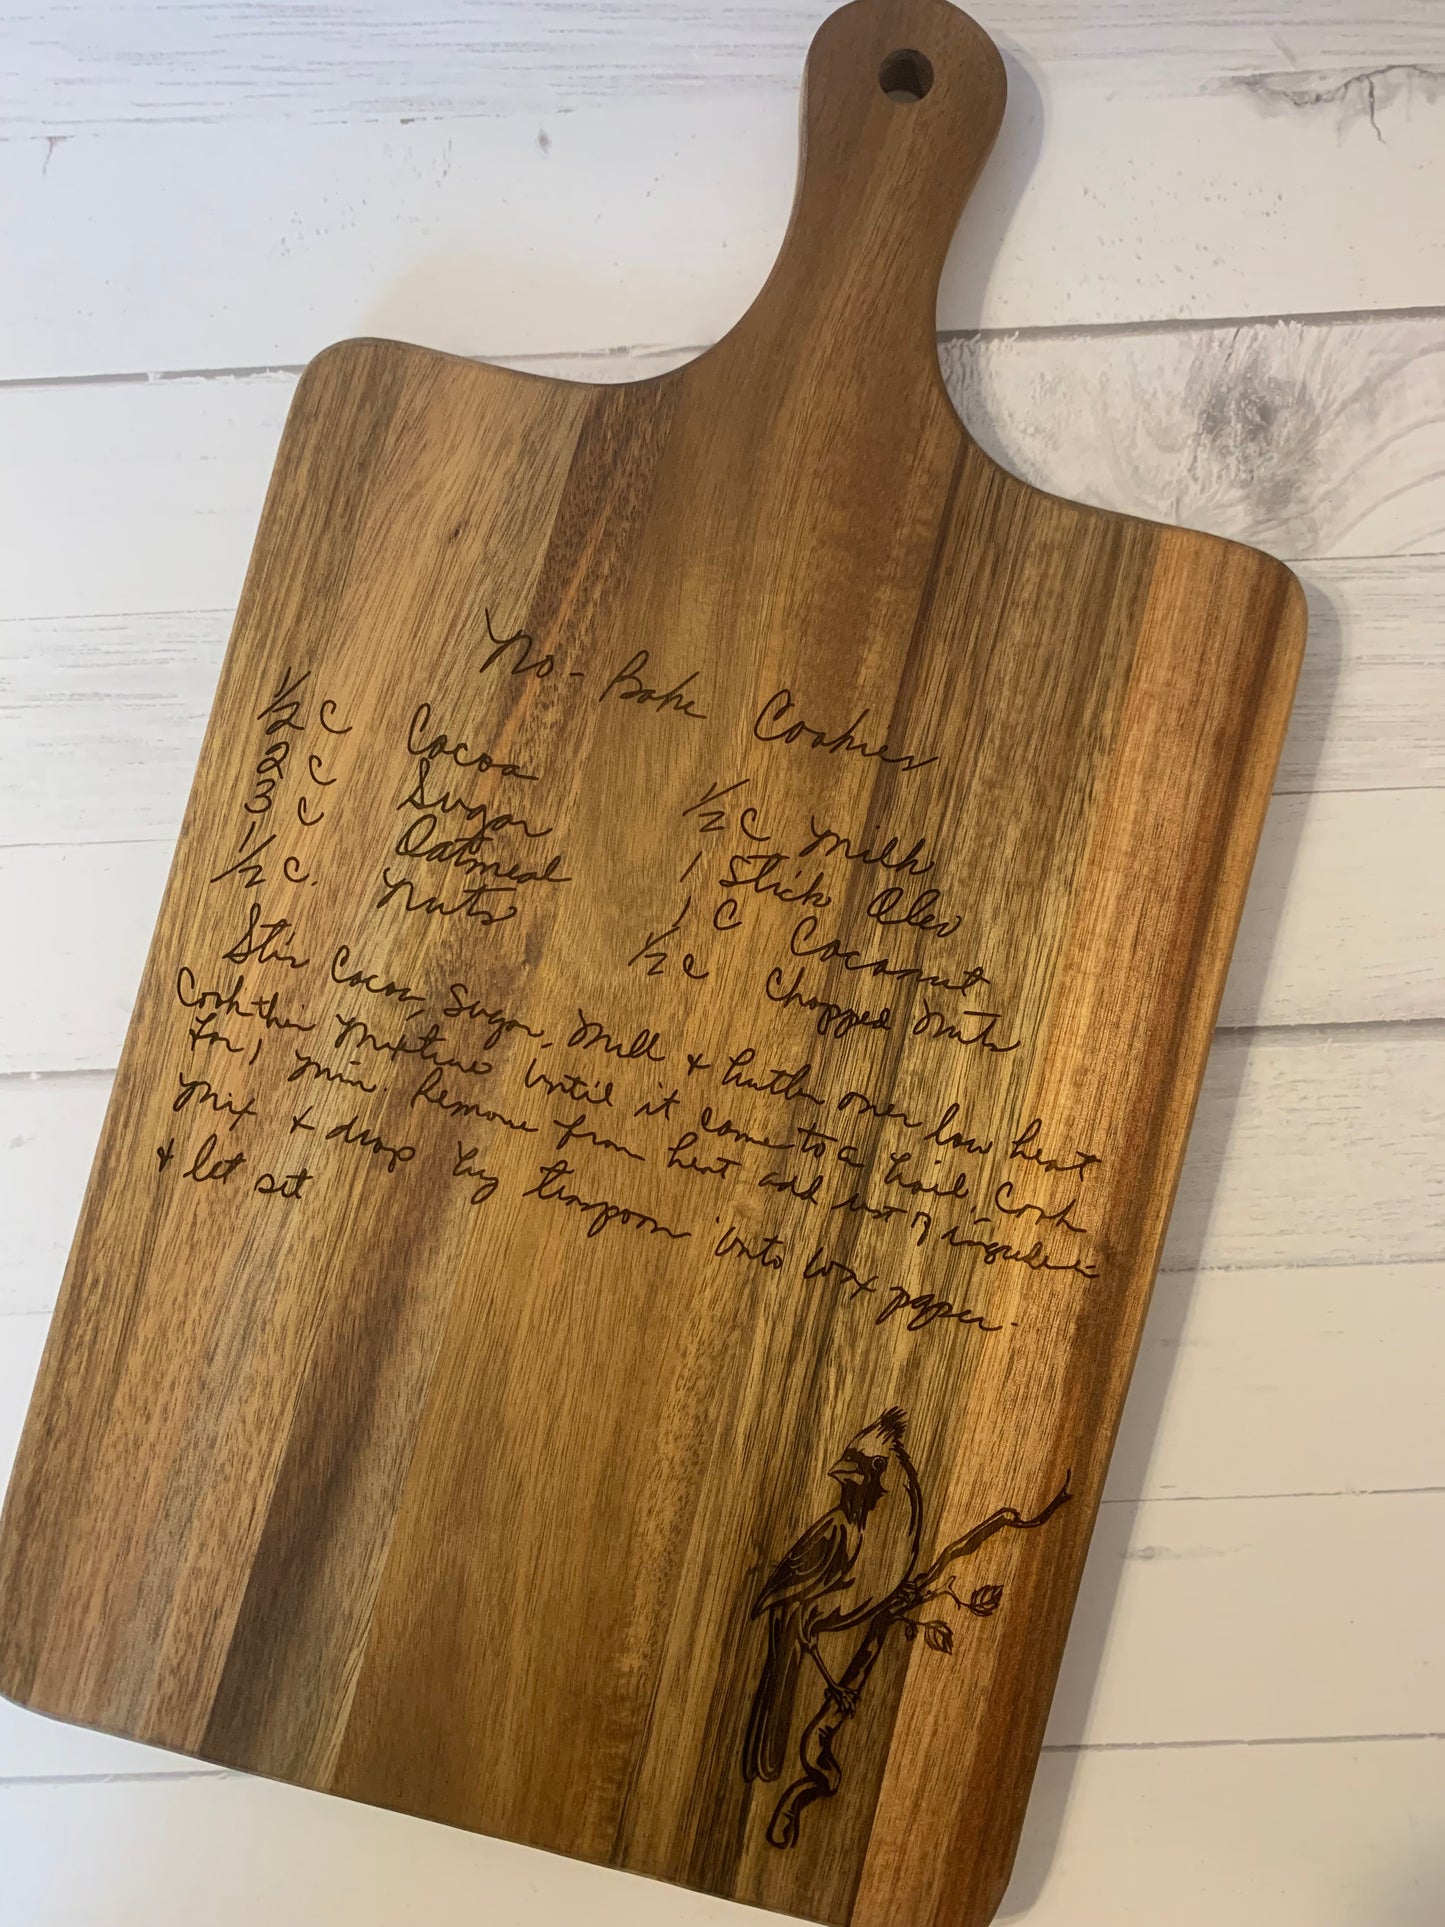 No-Bake Cookies
1/2 C Cocoa
2 C Sugar
3 C Oatmeal
1/2 C. Nuts
1/2 C Milk
1 Stick Oleo
1 C Coconut
1/2 C Chopped Nuts
Stir Cocoa, Sugar, Milk & butter over low heat
Cook this Mixture until it come to a boil. Cook
for 1 min. Remove from heat add rest of
Mix & drop by teaspoon onto wax paper.
& let set